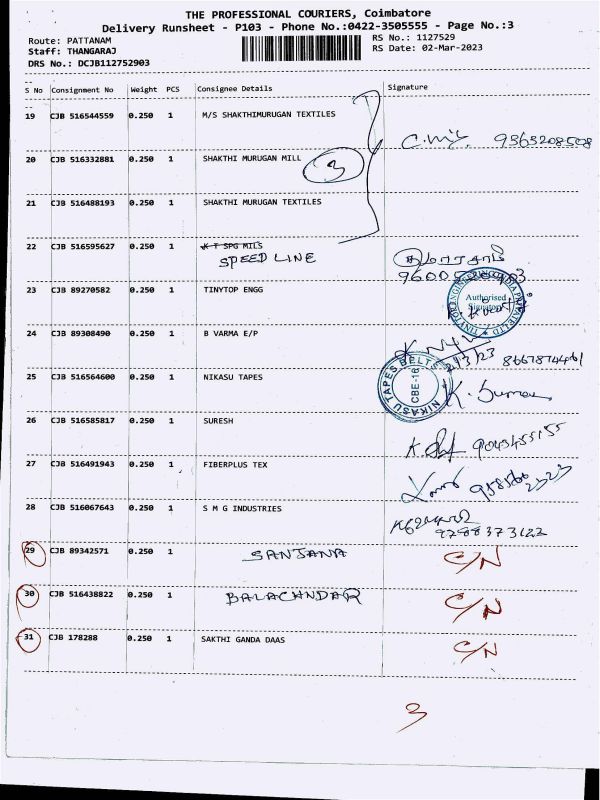 THE PROFESSIONAL COURIERS, Coimbatore
Delivery Runsheet - P103 - Phone No.:0422-3505555 - Page No.:3
Route: PATTANAM RS No.: 1127529
Staff: THANGARAJ RS Date: 02-Mar-2023
DRS No.: DCJB112752903
S No Consignment No Weight PCS Consignee Details Signature
19 CJB 516544559 0.250 1 M/S SHAKTHIMURUGAN TEXTILES
9363208508
20 CJB 516332881 0.250 1 SHAKTHI MURUGAN MILL 3
21 CJB 516488193 0.250 1 SHAKTHI MURUGAN TEXTILES
22 CJB 516595627 0.250 1 K T SPG MILS
SPEED LINE
23 CJB 89270582 0.250 1 TINYTOP ENGG Authorised Signatory
24 CJB 89308490 0.250 1 B VARMA E/P
2/3/23 8667874461
25 CJB 516564600 0.250 1 NIKASU TAPES NIKASU TAPES BELTS CBE-16 K. Suman
26 CJB 516585817 0.250 1 SURESH
9043455155
27 CJB 516491943 0.250 1 FIBERPLUS TEX
28 CJB 516067643 0.250 1 S M G INDUSTRIES
9788373122
29 CJB 89342571 0.250 1 SANJANA C/N
30 CJB 516438822 0.250 1 BALACHNDAR C/N
31 CJB 178288 0.250 1 SAKTHI GANDA DAAS C/N
3